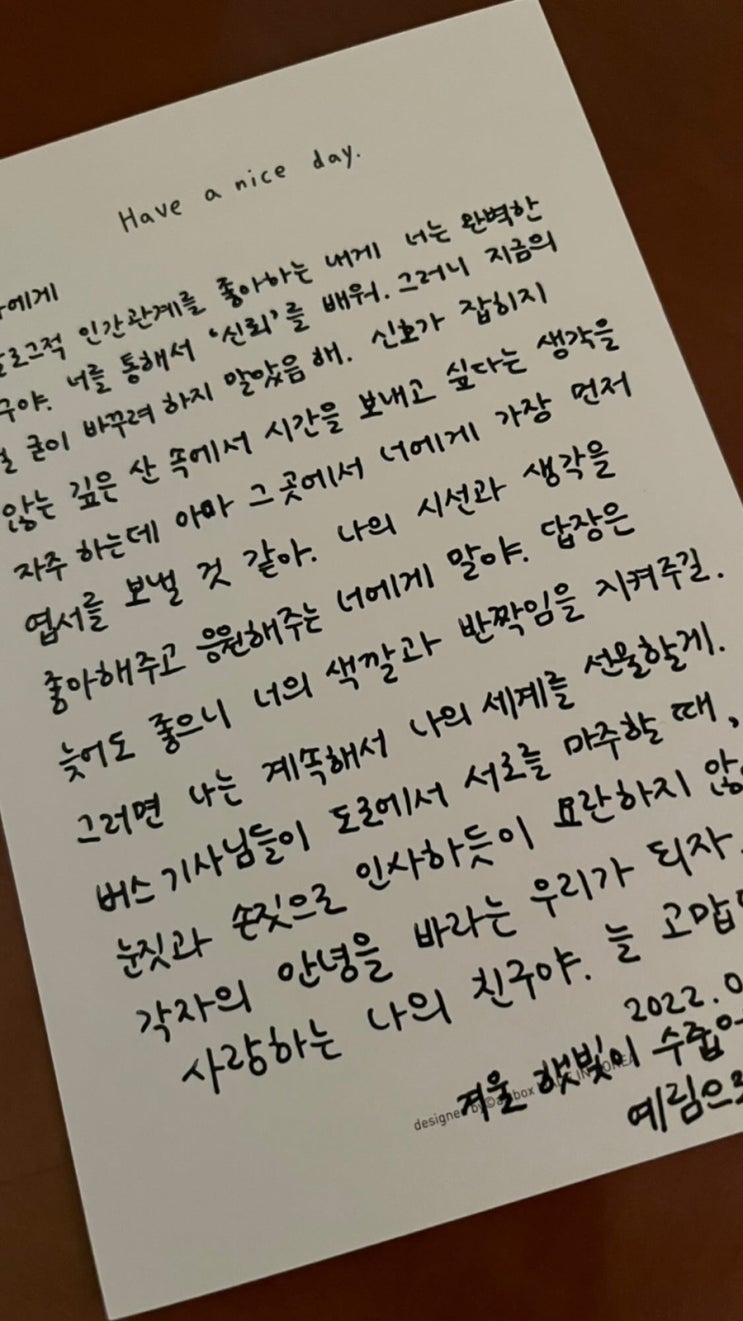 Have a nice day.
에게
인간관계를 좋아하는 내게 너는 완벽한
구야. 너를 통해서 '신뢰'를 배워. 그러니 지금의
굳이 바꾸려 하지 말았음 해. 신호가 잡히지
않는 깊은 산 속에서 시간을 보내고 싶다는 생각을
자주 하는데 아마 그 곳에서 너에게 가장 먼저
엽서를 보낼 것 같아. 나의 시선과 생각을
좋아해주고 응원해주는 너에게 말야. 답장은
늦어도 좋으니 너의 색깔과 반짝임을 지켜주길.
그러면 나는 계속해서 나의 세계를 선물할게.
버스 기사님들이 도로에서 서로를 마주할 때,
눈짓과 손짓으로 인사하듯이 요란하지 않
각자의 안녕을 바라는 우리가 되자.
사랑하는 나의 친구야. 늘 고맙
2022.0
겨울 햇빛이 수줍
예림으로
designed by